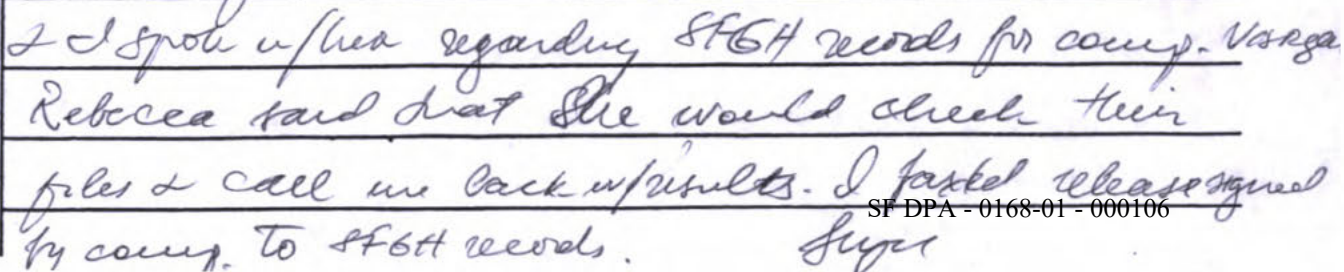 & I spoke w/her regarding SFGH records for comp. Varga
Rebecca said that she would check their
files & call me back w/results. I faxed release signed
SF DPA - 0168-01 - 000106
by comp. To SFGH records.